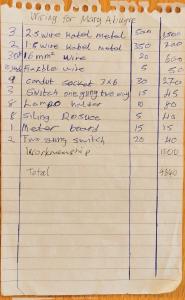 Wiring for Mary Abugre
3 2.5 wire Kabel metal 500 1500
2 1.5 wire Kabel metal 350 700
30 16mm² wire 20 600
5 flexible wire 5 50
9 conduit socket 7x6 30 270
3 Switch one gang two way 15 45
8 Lamp holder 10 80
8 Siling Rosuce 5 40
1 Meter board 15 15
2 Two gang switch 20 40
Workmanship 1500
Total 9840